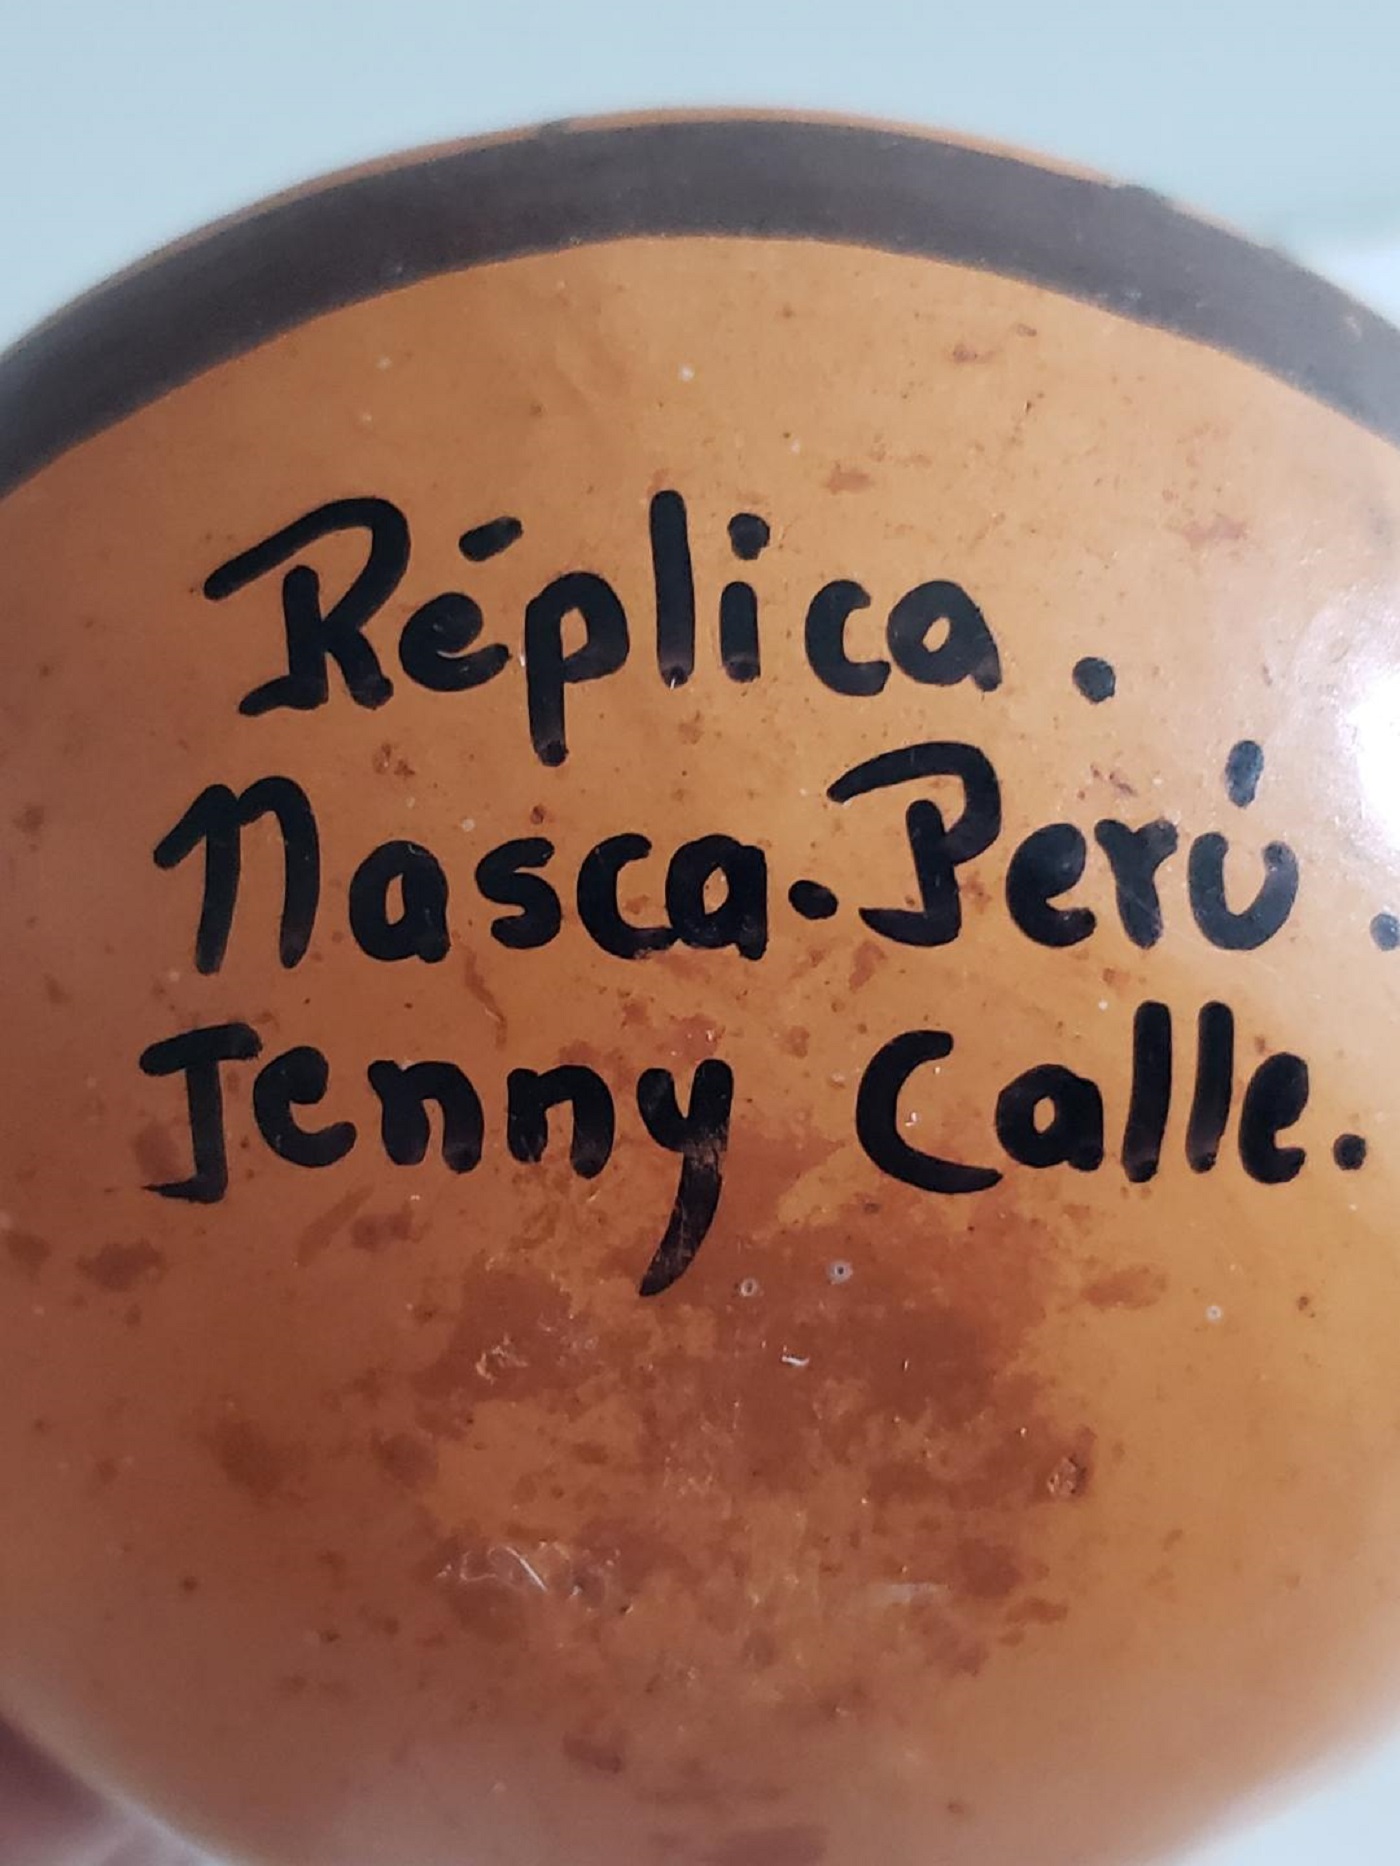 Réplica.
Nasca.Perú.
Jenny Calle.